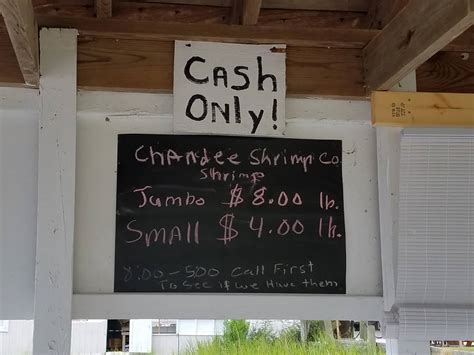 Cash
Only!
Chandee Shrimp Co.
Shrimp
Jumbo $8.00 lb.
Small $4.00 lb.
8:00-500 Call First
To See if we Have them